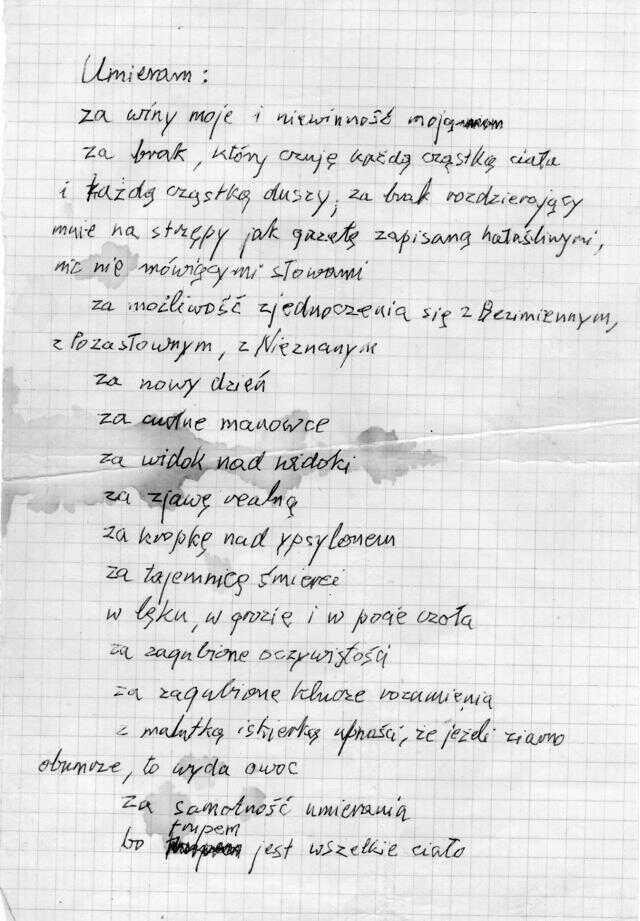 Umieram:
za winy moje i niewinność moją
za brak, który czuję każdą cząstką ciała
i każdą cząstką duszy, za brak rozdzierający
mnie na strzępy jak gazetę zapisaną hałaśliwymi,
nic nie mówiącymi słowami
za możliwość zjednoczenia się z Bezimiennym,
z Pozasłownym, z Nieznanym
za nowy dzień
za cudne manowce
za widok nad widoki
za zjawę realną
za kropkę nad ypsylonem
za tajemnicę śmierci
w lęku, w grozie i w pocie czoła
za zagubione oczywistości
za zagubione klucze rozumienia
z malutką iskierką ufności, że jeżeli ziarno
obumrze, to wyda owoc
za samotność umierania
trupem
bo jest wszelkie ciało